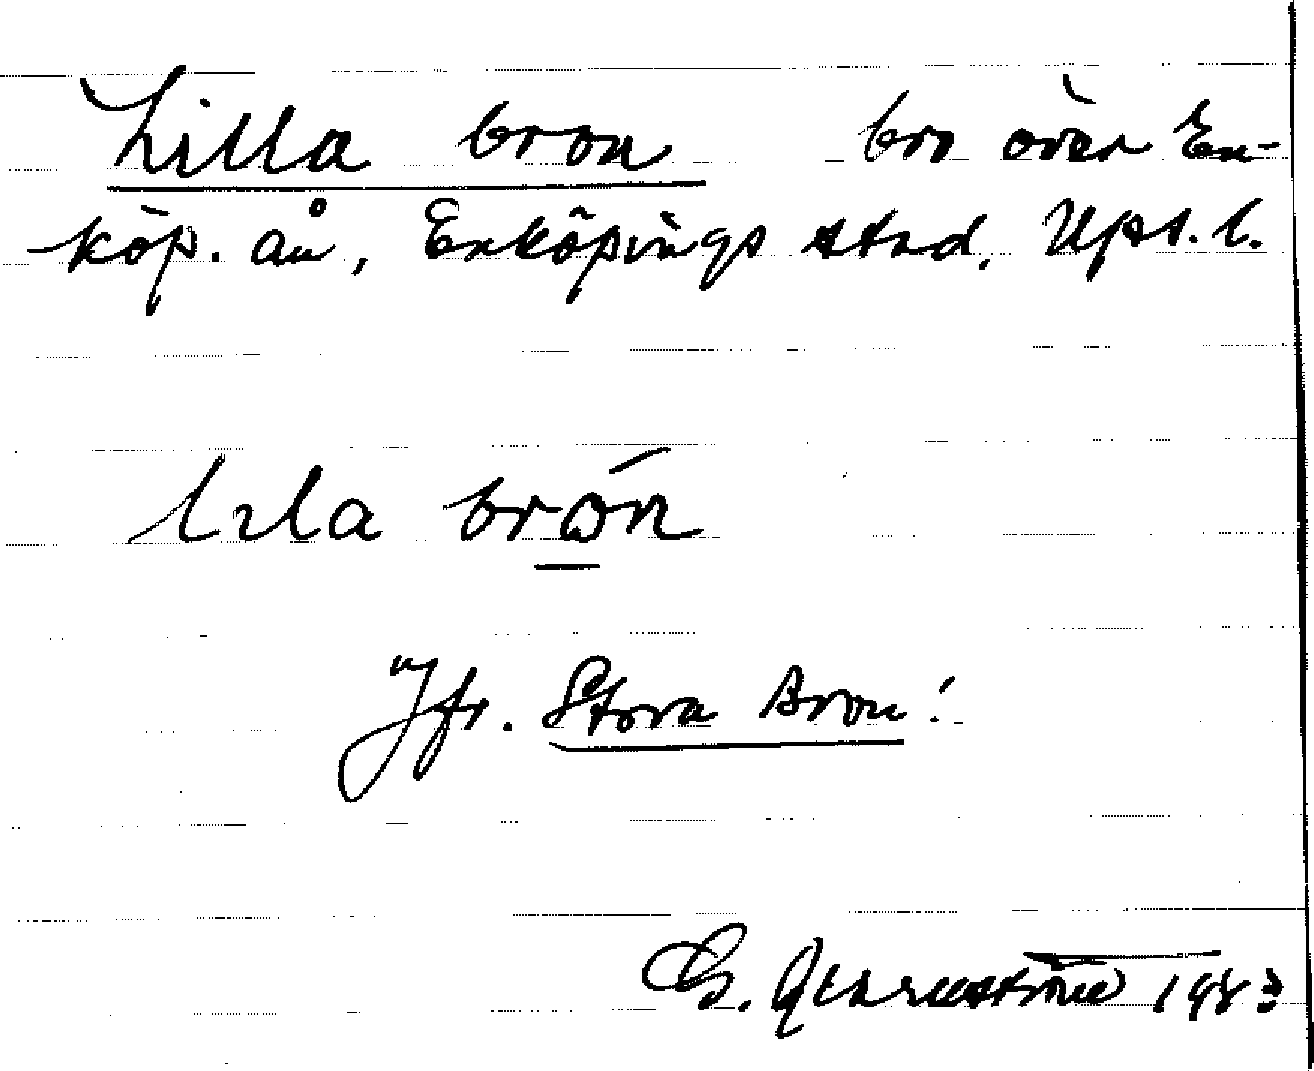 Lilla bron bro över En-
köp. ån, Enköpings stad, Upps. l.
lıla brón
Jfr. Stora Bron!
G. Qvarnström 1983